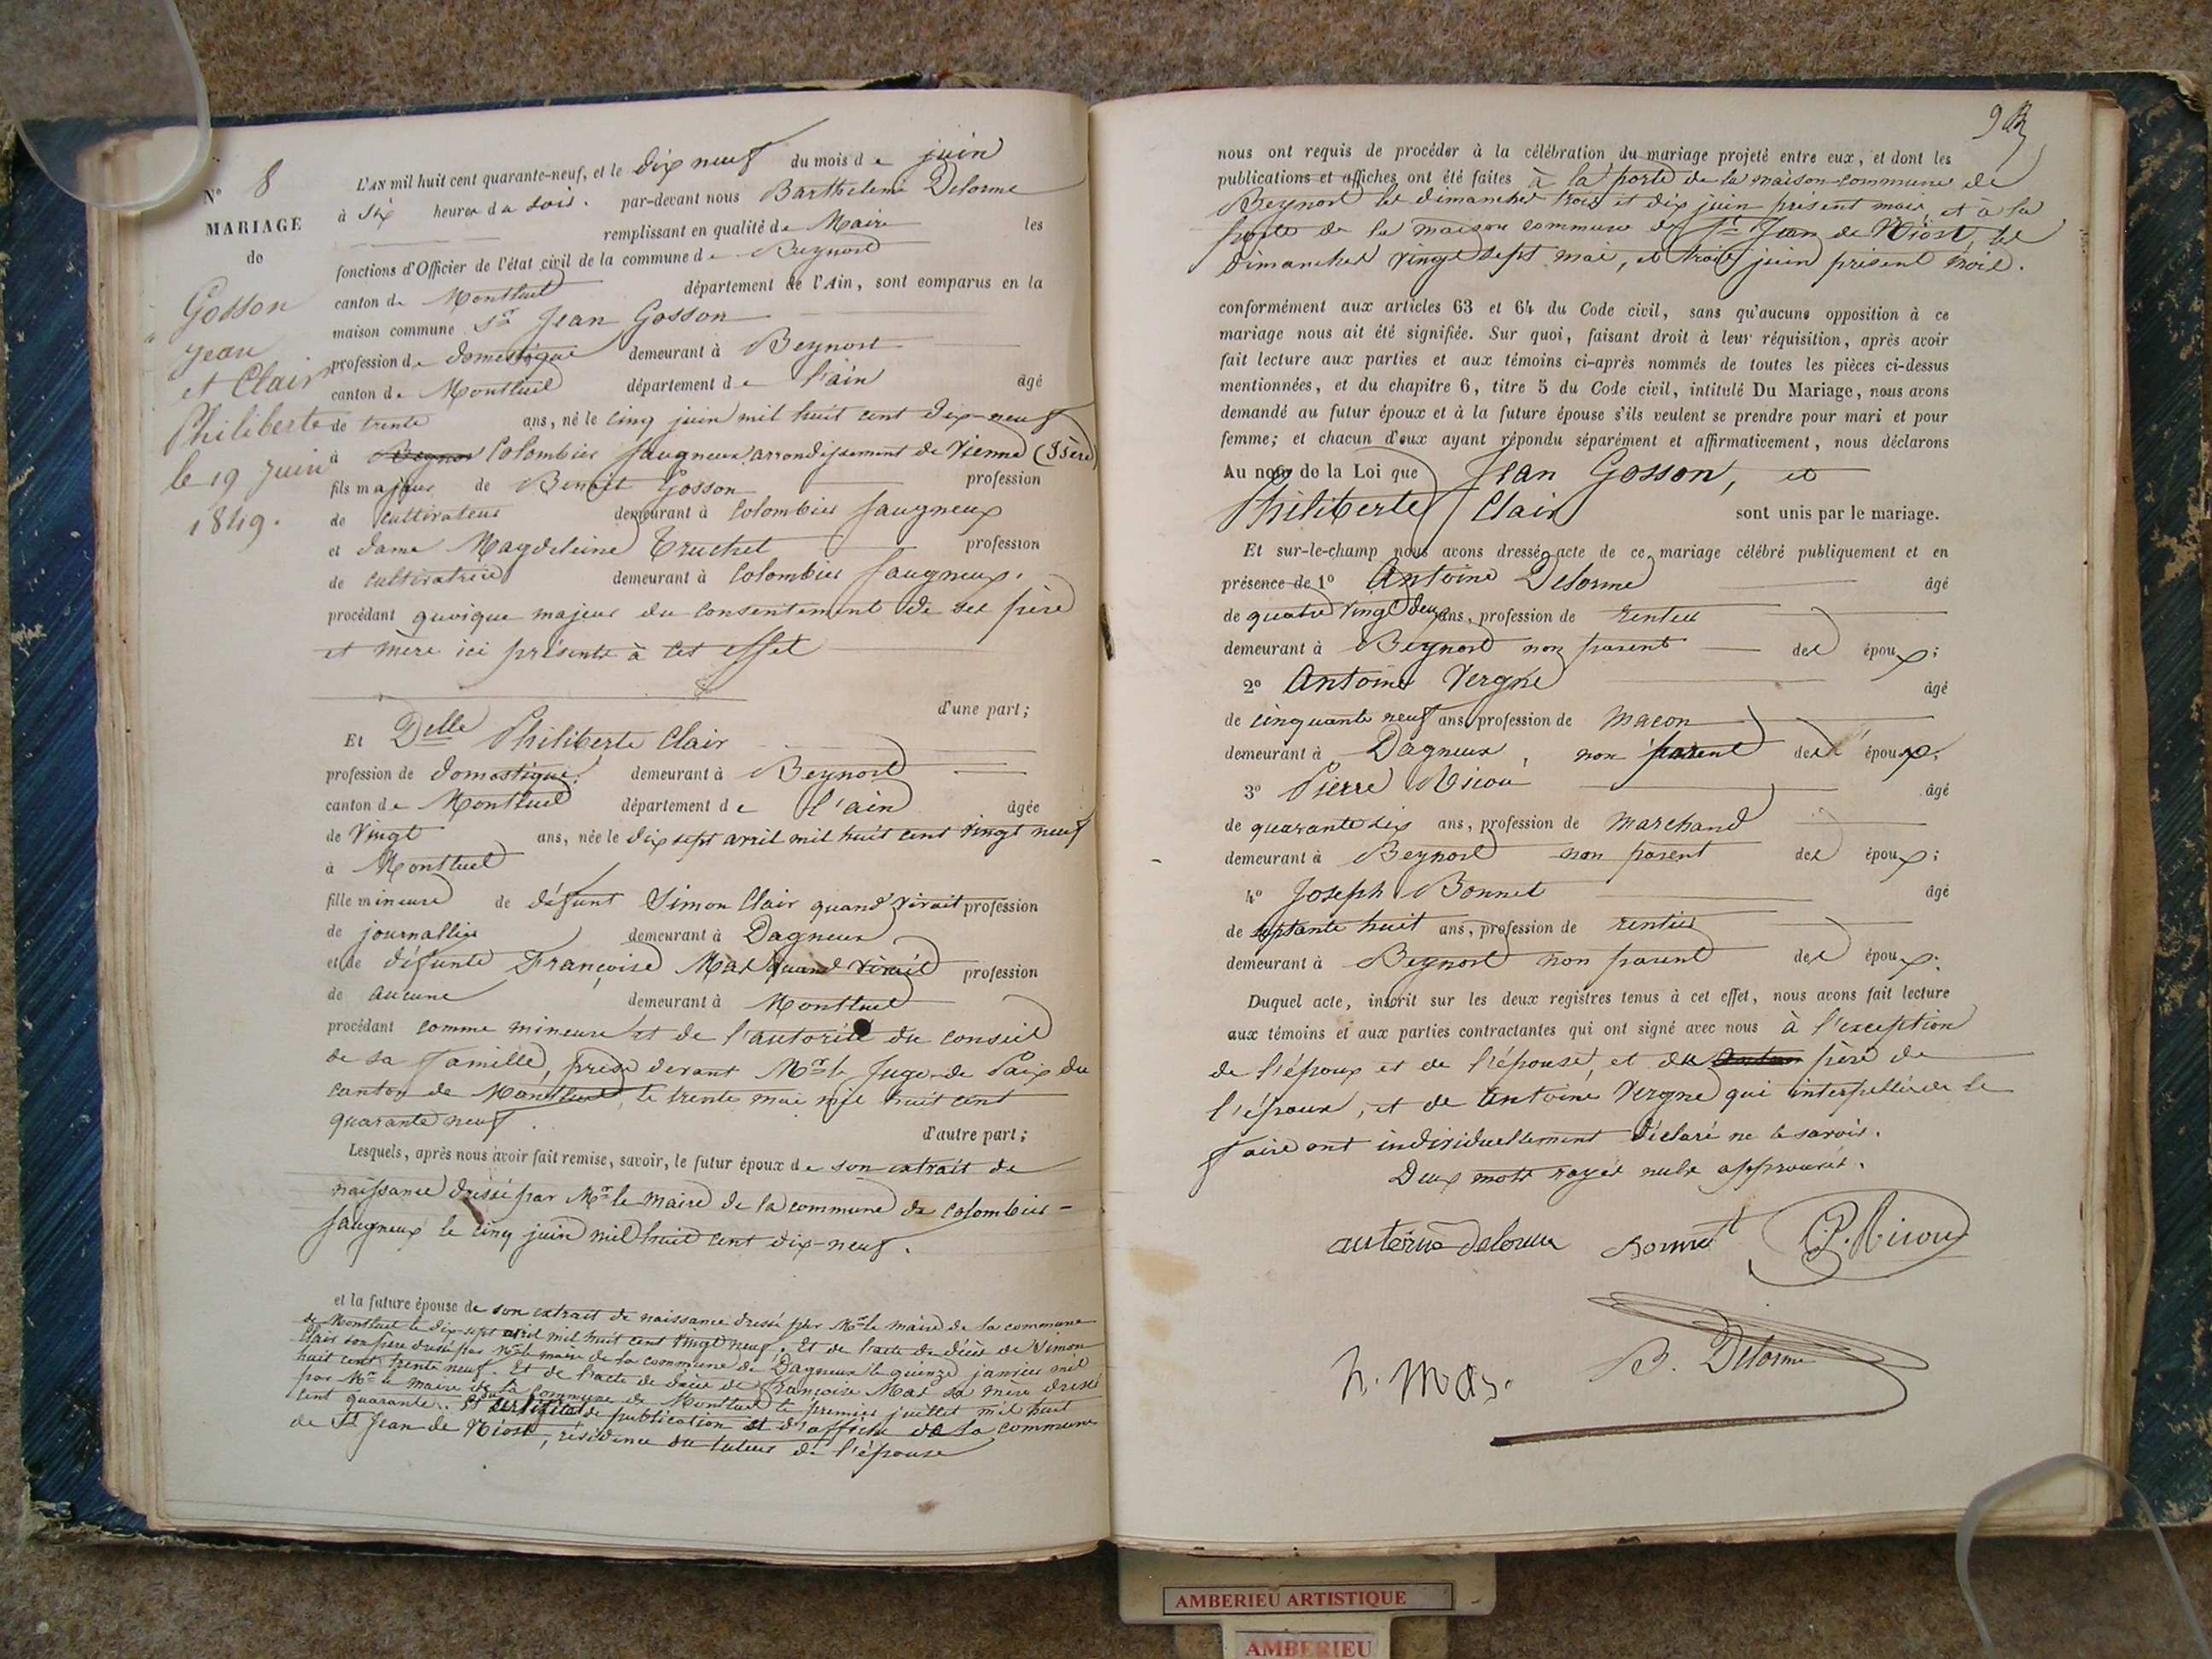 N° 8
MARIAGE
de
Gosson
Jean
et Clair
Philiberte
le 19 Juin
1849.
L'AN mil huit cent quarante-neuf, et le dix neuf du mois de juin
à six heures du soir. par-devant nous Barthelemi Delorme
remplissant en qualité de Maire les
fonctions d'Officier de l'état civil de la commune de Beynost
canton de Montluel département de l'Ain, sont comparus en la
maison commune Sr Jean Gosson
profession de domestique demeurant à Beynost
canton de Montluel département de l'ain âgé
de trente ans, né le cinq juin mil huit cent dix-neuf
à Beynos Colombier Saugneux arrondissement de Vienne (Isère)
fils majeur de Benoit Gosson profession
de cultivateur demeurant à Colombier Saugneux
et dame Magdeleine Truchet profession
de cultivatrice demeurant à Colombier Saugneux.
procédant quoique majeur du consentement de ses père
et mère ici présents à cet effet
d'une part;
Et Delle Philiberte Clair
profession de domestique. demeurant à Beynost
canton de Montluel département de l'ain âgée
de vingt ans, née le dix sept avril mil huit cent vingt neuf
à Montluel
fille mineure de défunt Simon Clair quand vivait profession
de journallier demeurant à Dagneux
et de défunte Françoise Mas quand vivait profession
de aucune demeurant à Montluel
procédant comme mineure et de l'autorité du conseil
de sa famille, prise devant Mr le Juge de Paix du
canton de Montluel, le trente mai mil huit cent
quarante neuf.
d'autre part;
Lesquels, après nous avoir fait remise, savoir, le futur époux de son extrait de
naissance dressé par Mr le maire de la commune de Colombier-
Saugneux le cinq juin mil huit cent dix-neuf.
et la future épouse de son extrait de naissance dressé par Mr le maire de la commune
de Montluel le dix-sept avril mil huit cent vingt neuf. Et de l'acte de décès de Simon
Clair son père dressé par Mr le maire de la commune de Dagneux le quinze janvier mil
huit cent trente neuf. Et de l'acte de décès de Françoise Mas sa mère dressé
par Mr le maire de la commune de Montluel le premier juillet mil huit
cent quarante. Et du certificat de publication et d'affiche de la commune
de St Jean de Niost, résidence du tuteur de l'épouse
nous ont requis de procéder à la célébration du mariage projeté entre eux, et dont les
publications et affiches ont été faites à la porte de la maison commune de
Beynost les dimanches trois et dix juin présent mois, et à la
porte de la maison commune de St Jean de Niost, les
dimanches vingt sept mai, et trois juin présent mois.
conformément aux articles 63 et 64 du Code civil, sans qu'aucune opposition à ce
mariage nous ait été signifiée. Sur quoi, faisant droit à leur réquisition, après avoir
fait lecture aux parties et aux témoins ci-après nommés de toutes les pièces ci-dessus
mentionnées, et du chapitre 6, titre 5 du Code civil, intitulé Du Mariage, nous avons
demandé au futur époux et à la future épouse s'ils veulent se prendre pour mari et pour
femme; et chacun d'eux ayant répondu séparément et affirmativement, nous déclarons
Au nom de la Loi que Jean Gosson, et
Philiberte Clair sont unis par le mariage.
Et sur-le-champ nous avons dressé acte de ce mariage célébré publiquement et en
présence de 1° Antoine Delorme âgé
de quatre vingt deux ans, profession de rentier
demeurant à Beynost non parent des époux;
2° Antoine Vergne âgé
de cinquante neuf ans, profession de macon
demeurant à Dagneux, non parent des époux;
3° Pierre Nicou âgé
de quarante six ans, profession de marchand
demeurant à Beynost non parent des époux;
4° Joseph Bonnet âgé
de septante huit ans, profession de rentier
demeurant à Beynost non parent des époux;
Duquel acte, inscrit sur les deux registres tenus à cet effet, nous avons fait lecture
aux témoins et aux parties contractantes qui ont signé avec nous à l'exception
de l'époux et de l'épouse, et du père de
l'époux, et de Antoine Vergne qui interpellés de le
faire ont individuellement déclaré ne le savoir.
Deux mots rayés nuls approuvés.
antoine delorme bonnet P. Nicou
h. mas. B. Delorme
AMBERIEU ARTISTIQUE
AMBERIEU